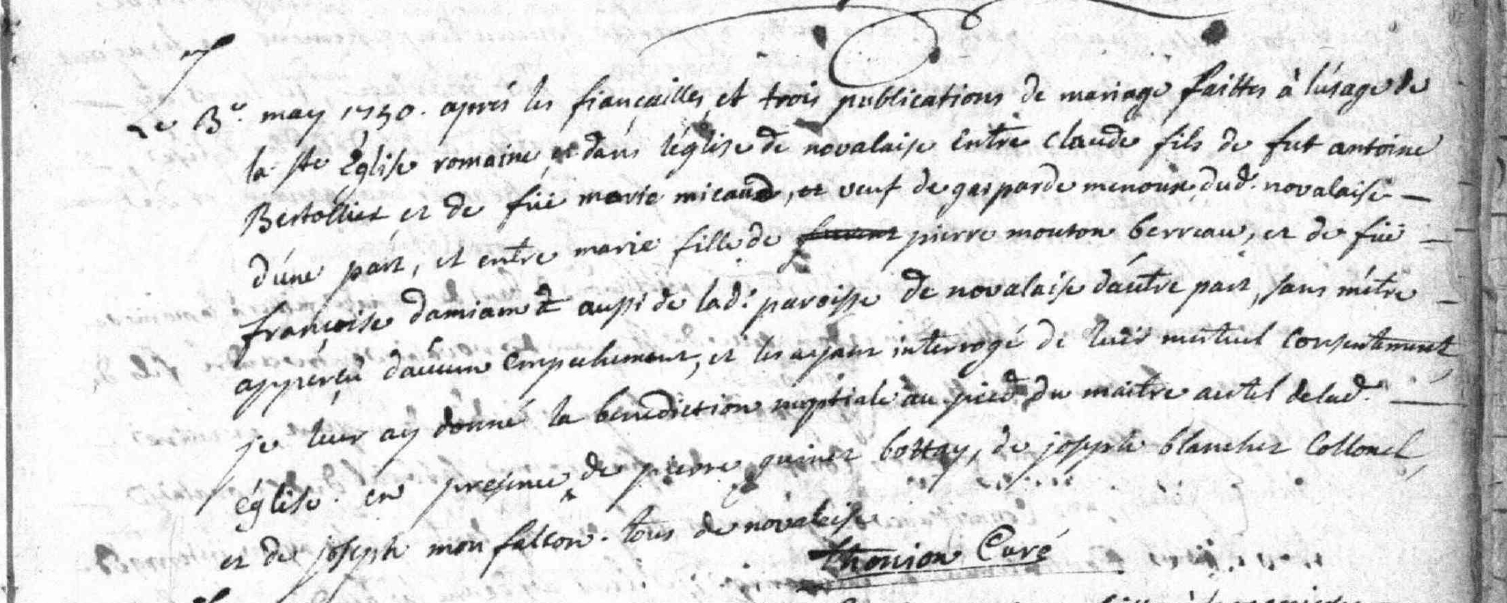 Le 3.e may 1750. aprés les fiançailles et trois publications de mariage faittes à l'úsage de
la Ste Eglise romaine, et dans l'églisE de novalaise Entre claude fils de fut antoine
Bertollier et de füe marie micaud, et veuf de gasparde menoux dud. novalaise —
d'úne part, et entre marie fille de pierre mouton berreau, et de füe —
françoise damian et aussi de lad: paroisse de novalaise d'aútre part, sans m'étre —
apperçú d'aúcun Empechement, et les ayant interrogé de leúr mutuel consentement,
je leur ay donné la benediction nuptiale au pied du maitre autel de lad. —
église. en presence de pierre guinet bottay, de joseph blanchet Collonel,
et de joseph monfalcon. tous de novalaise
thonion Curé